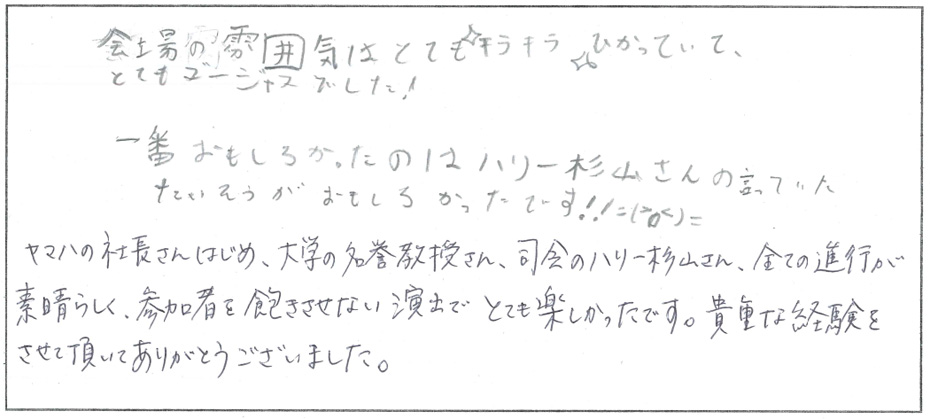 会場の雰囲気はとても☆キラキラ☆ひかっていて、
とてもゴージャスでした!
一番おもしろかったのはハリー杉山さんの言っていた
たいそうがおもしろかったです!!=(>o<)=
ヤマハの社長さんはじめ、大学の名誉教授さん、司会のハリー杉山さん、全ての進行が
素晴らしく、参加者を飽きさせない演出でとても楽しかったです。貴重な経験を
させて頂いてありがとうございました。